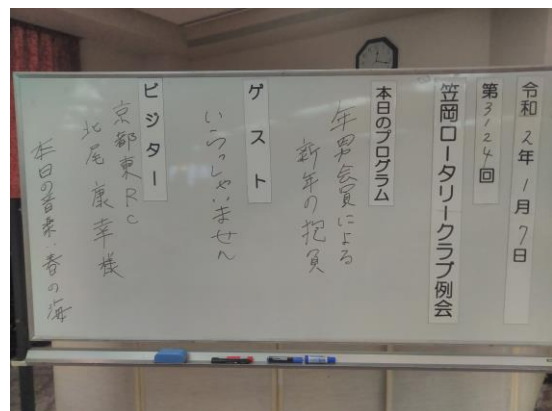 令和2年1月7日
第3124回
笠岡ロータリークラブ例会
本日のプログラム
年男会員による
新年の抱負
ゲスト
いらっしゃいません
ビジター
京都東RC
北尾康幸様
本日の音楽:春の海